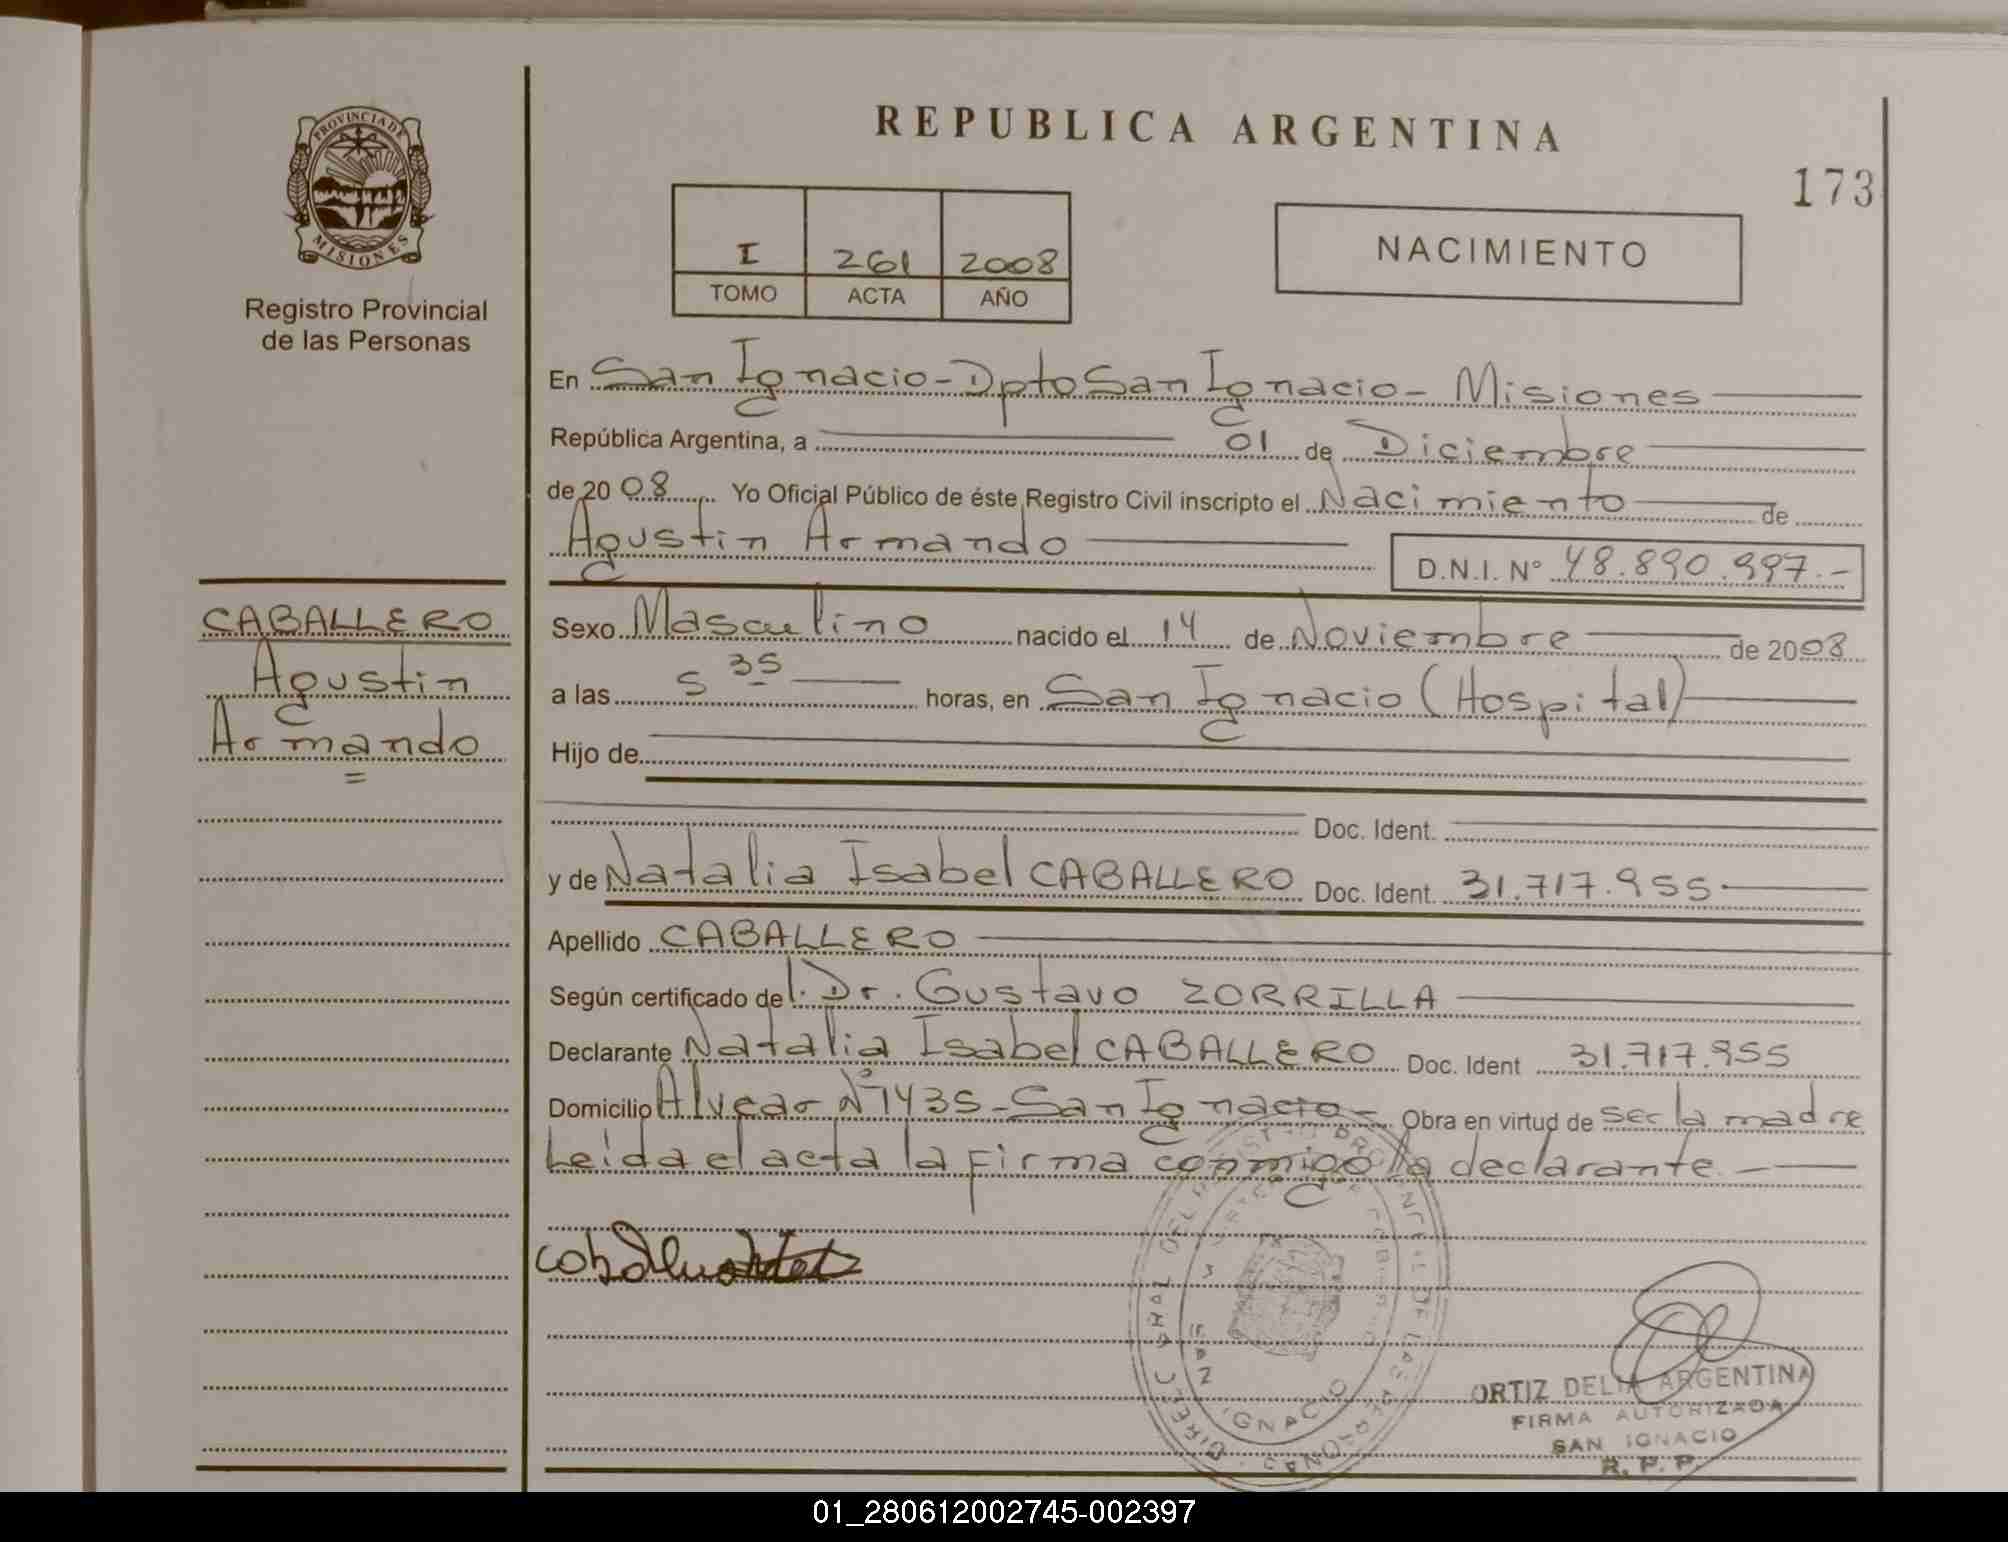 REPUBLICA ARGENTINA
173
PROVINCIA DE
MISIONES
Registro Provincial
de las Personas
I 261 2008
TOMO ACTA AÑO
NACIMIENTO
En San Ignacio - Dpto San Ignacio - Misiones
República Argentina, a 01 de Diciembre
de 2008 Yo Oficial Público de éste Registro Civil inscripto el Nacimiento de
Agustin Armando D.N.I. Nº 48.890.997.-
CABALLERO
Agustin
Armando
=
Sexo Masculino nacido el 14 de Noviembre de 2008
a las 5 35 horas, en San Ignacio (Hospital)
Hijo de
Doc. Ident.
y de Natalia Isabel CABALLERO Doc. Ident. 31.717.955
Apellido CABALLERO
Según certificado del. Dr. Gustavo ZORRILLA
Declarante Natalia Isabel CABALLERO Doc. Ident 31.717.955
Domicilio Alvear Nº 1435 - San Ignacio - Obra en virtud de ser la madre
Leída el acta la firma conmigo la declarante
ORTIZ DELIA ARGENTINA
FIRMA AUTORIZADA
SAN IGNACIO
R. P. P.
01_280612002745-002397